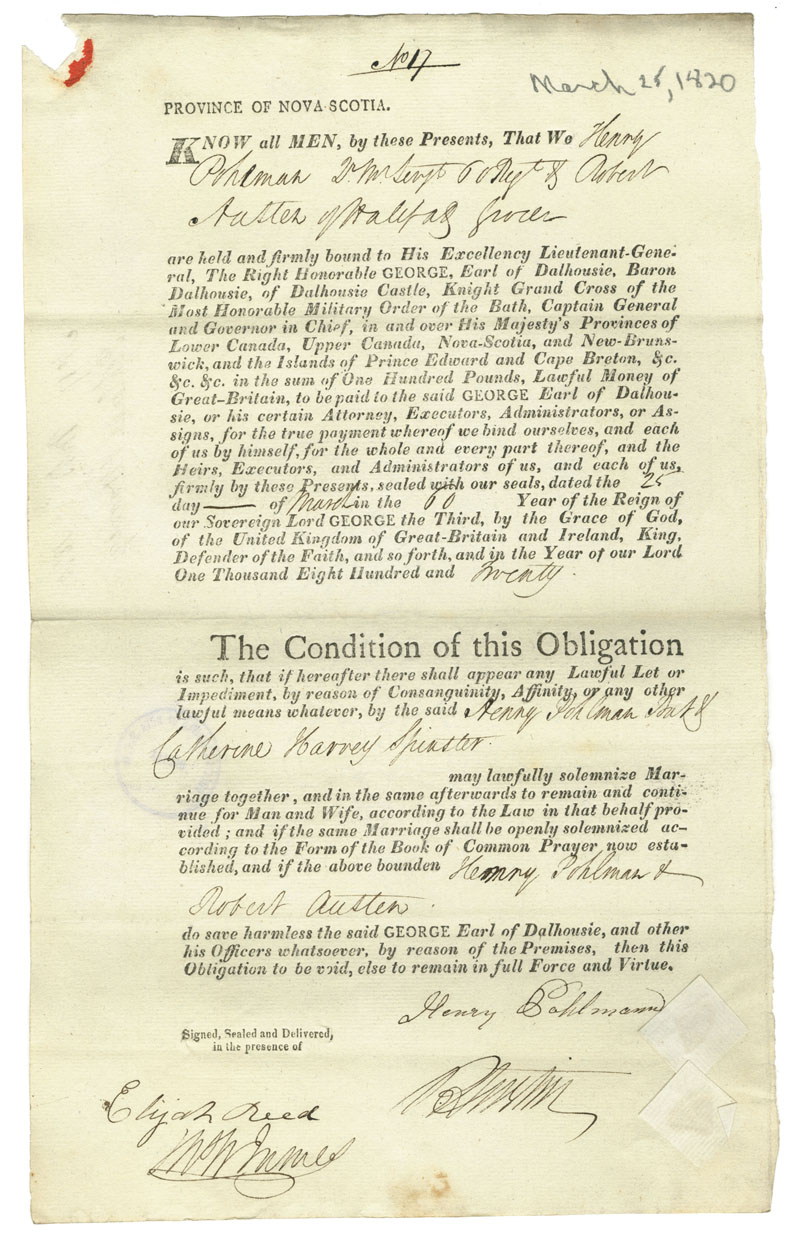 No 17
March 25, 1820
PROVINCE OF NOVA-SCOTIA.
KNOW all MEN, by these Presents, That We Henry
Pohlman Qr Mr Sergt 60 Regt & Robert
Austen of Halifax Grocer
are held and firmly bound to His Excellency Lieutenant-Gene-
ral, The Right Honorable GEORGE, Earl of Dalhousie, Baron
Dalhousie, of Dalhousie Castle, Knight Grand Cross of the
Most Honorable Military Order of the Bath, Captain General
and Governor in Chief, in and over His Majesty's Provinces of
Lower Canada, Upper Canada, Nova-Scotia, and New-Bruns-
wick, and the Islands of Prince Edward and Cape Breton, &c.
&c. &c. in the sum of One Hundred Pounds, Lawful Money of
Great-Britain, to be paid to the said GEORGE Earl of Dalhou-
sie, or his certain Attorney, Executors, Administrators, or As-
signs, for the true payment whereof we bind ourselves, and each
of us by himself, for the whole and every part thereof, and the
Heirs, Executors, and Administrators of us, and each of us,
firmly by these Presents, sealed with our seals, dated the 25
day of March in the 60 Year of the Reign of
our Sovereign Lord GEORGE the Third, by the Grace of God,
of the United Kingdom of Great-Britain and Ireland, King,
Defender of the Faith, and so forth, and in the Year of our Lord
One Thousand Eight Hundred and Twenty.
The Condition of this Obligation
is such, that if hereafter there shall appear any Lawful Let or
Impediment, by reason of Consanguinity, Affinity, or any other
lawful means whatever, by the said Henry Pohlman Bat &
Catherine Harvey Spinster.
may lawfully solemnize Mar-
riage together, and in the same afterwards to remain and conti-
nue for Man and Wife, according to the Law in that behalf pro-
vided; and if the same Marriage shall be openly solemnized ac-
cording to the Form of the Book of Common Prayer, now esta-
blished, and if the above bounden Henry Pohlman &
Robert Austen.
do save harmless the said GEORGE Earl of Dalhousie, and other
his Officers whatsoever, by reason of the Premises, then this
Obligation to be void, else to remain in full Force and Virtue.
Henry Pohlmann
Signed, Sealed and Delivered,
in the presence of
Elijah Reed